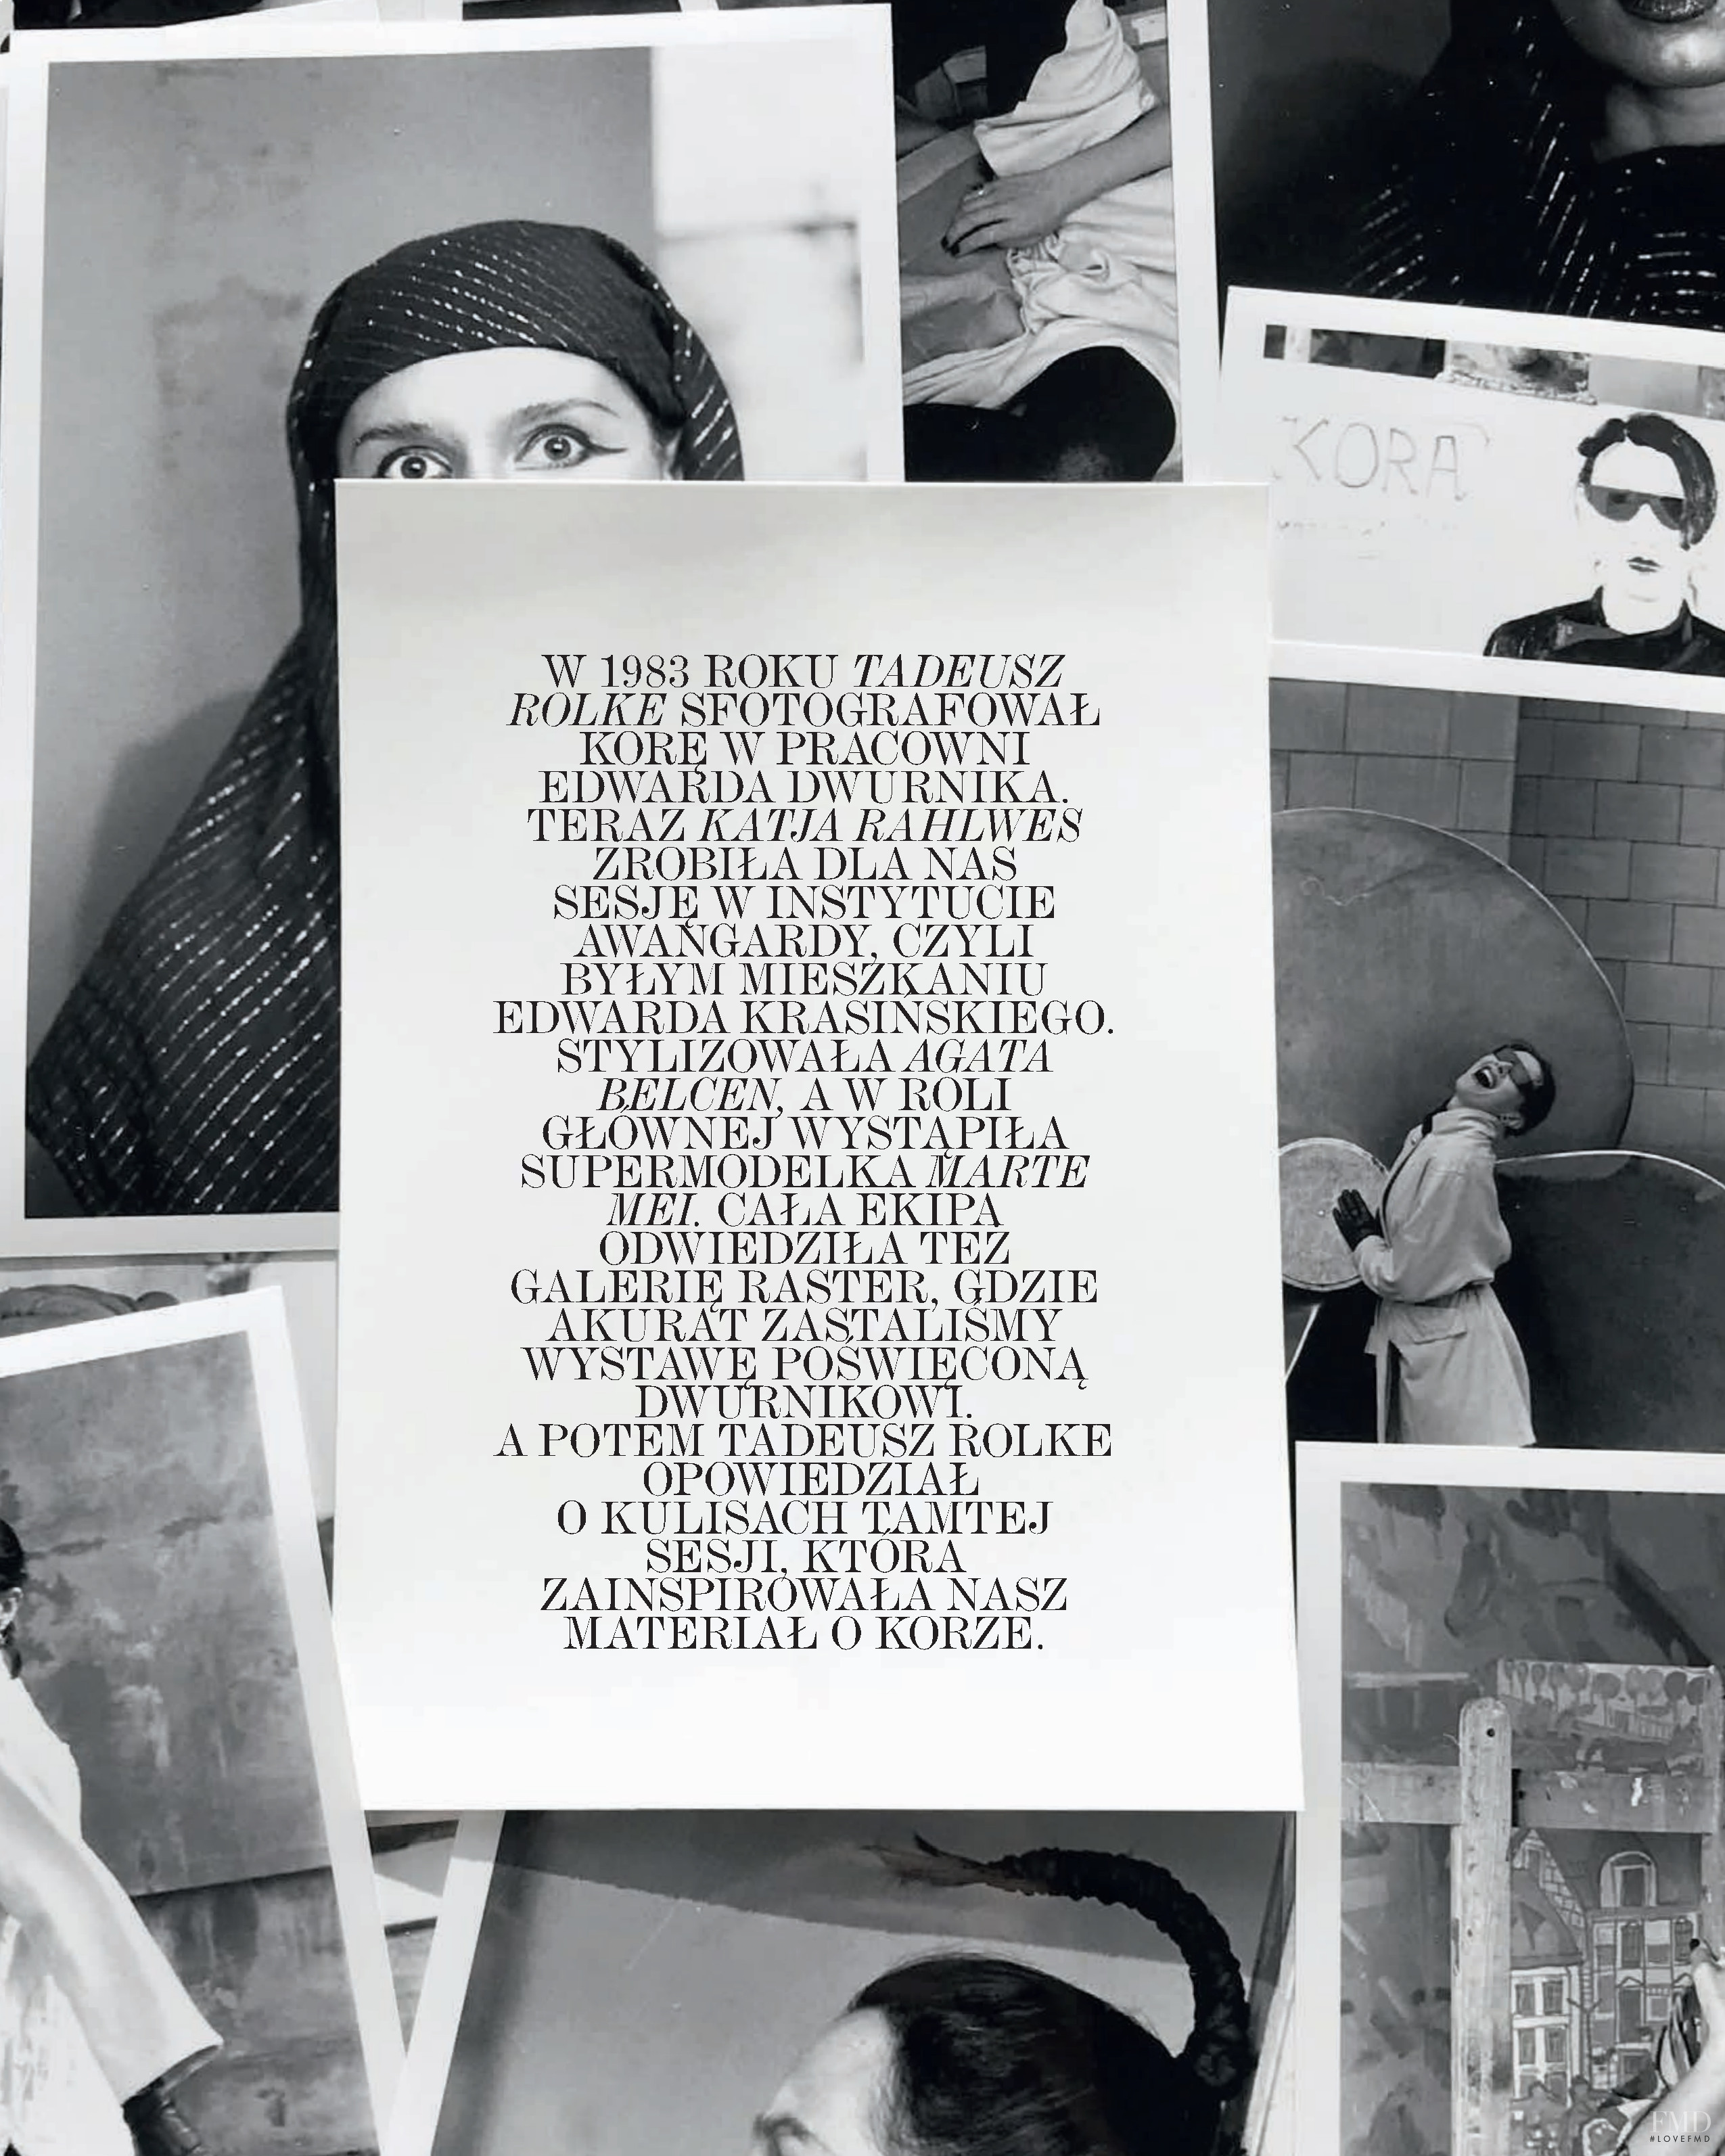 KORA
W 1983 ROKU TADEUSZ
ROLKE SFOTOGRAFOWAŁ
KORĘ W PRACOWNI
EDWARDA DWURNIKA.
TERAZ KATJA RAHLWES
ZROBIŁA DLA NAS
SESJĘ W INSTYTUCIE
AWANGARDY, CZYLI
BYŁYM MIESZKANIU
EDWARDA KRASIŃSKIEGO.
STYLIZOWAŁA AGATA
BELCEN, A W ROLI
GŁÓWNEJ WYSTĄPIŁA
SUPERMODELKA MARTE
MEI. CAŁA EKIPA
ODWIEDZIŁA TEŻ
GALERIĘ RASTER, GDZIE
AKURAT ZASTALIŚMY
WYSTAWĘ POŚWIĘCONĄ
DWURNIKOWI.
A POTEM TADEUSZ ROLKE
OPOWIEDZIAŁ
O KULISACH TAMTEJ
SESJI, KTÓRA
ZAINSPIROWAŁA NASZ
MATERIAŁ O KORZE.
FMD
#LOVEFMD